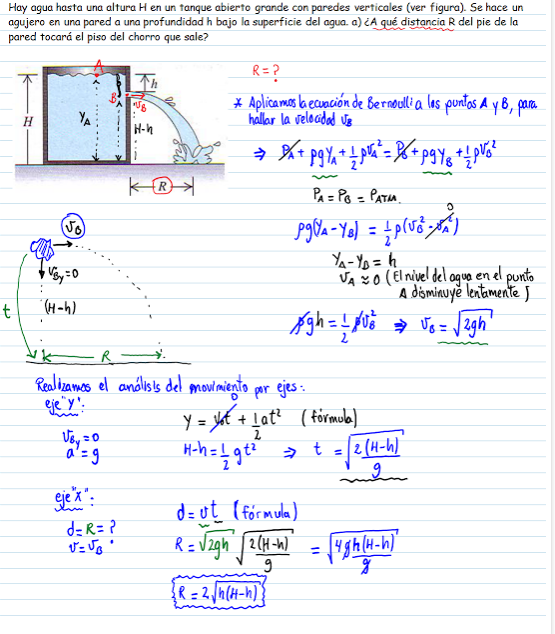 Hay agua hasta una altura H en un tanque abierto grande con paredes verticales (ver figura). Se hace un
agujero en una pared a una profundidad h bajo la superficie del agua. a) ¿A qué distancia R del pie de la
pared tocará el piso del chorro que sale?
R = ?
* Aplicamos la ecuación de Bernoulli a los puntos A y B, para
hallar la velocidad v_B
⇒ P_A + ρgy_A + 1/2 ρv_A² = P_B + ρgy_B + 1/2 ρv_B²
P_A = P_B = P_ATM.
ρg(y_A - y_B) = 1/2 ρ(v_B² - v_A²) 0
y_A - y_B = h
v_A ≈ 0 (El nivel del agua en el punto
A disminuye lentamente)
ρgh = 1/2 ρv_B² ⇒ v_B = √2gh
A
h
B
v_B
y_A
H
H-h
R
v_B
v_By = 0
t
(H-h)
R
Realizamos el análisis del movimiento por ejes:
eje "y":
v_By = 0
a = g
y = v₀t + 1/2 at² (fórmula)
0
H-h = 1/2 gt² ⇒ t = √(2(H-h)/g)
eje "x":
d = R = ?
v = v_B
d = vt (fórmula)
R = √2gh √(2(H-h)/g) = √(4gh(H-h)/g)
R = 2√h(H-h)